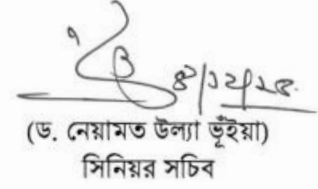 ৪/১২/২৪
(ড. নেয়ামত উল্যা ভূঁইয়া)
সিনিয়র সচিব